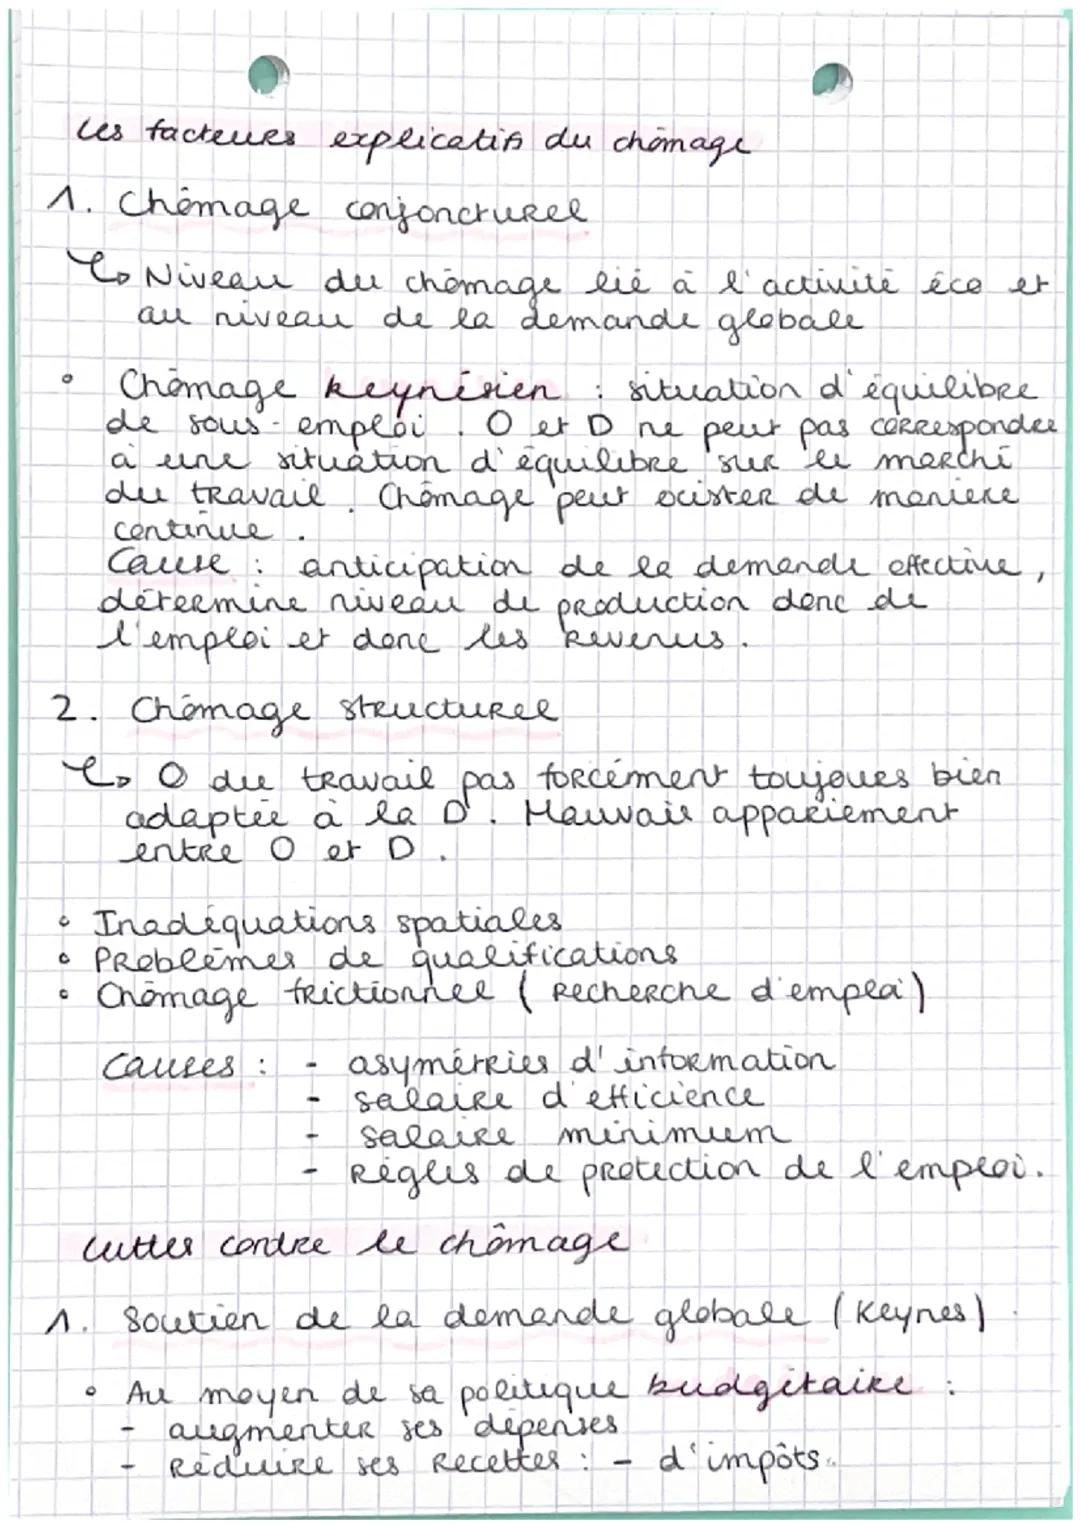 Les facteurs explicatifs du chômage
1. Chômage conjoncturel
↳ Niveau du chômage lié à l'activité éco et
au niveau de la demande globale
• Chômage keynésien : situation d'équilibre
de sous-emploi. O et D ne peut pas correspondre
à une situation d'équilibre sur le marché
du travail. Chômage peut exister de manière
continue.
Cause : anticipation de la demande effective,
détermine niveau de production donc de
l'emploi et donc les revenus.
2. Chômage structurel
↳ O du travail pas forcément toujours bien
adaptée à la D. Mauvais appariement
entre O et D.
• Inadéquations spatiales
• Problèmes de qualifications
• Chômage frictionnel (recherche d'emploi)
Causes : - asymétries d'information
- salaire d'efficience
- salaire minimum
- Règles de protection de l'emploi.
Lutter contre le chômage
1. Soutien de la demande globale (Keynes)
• Au moyen de sa politique budgétaire :
- augmenter ses dépenses
- Réduire ses recettes : - d'impôts.